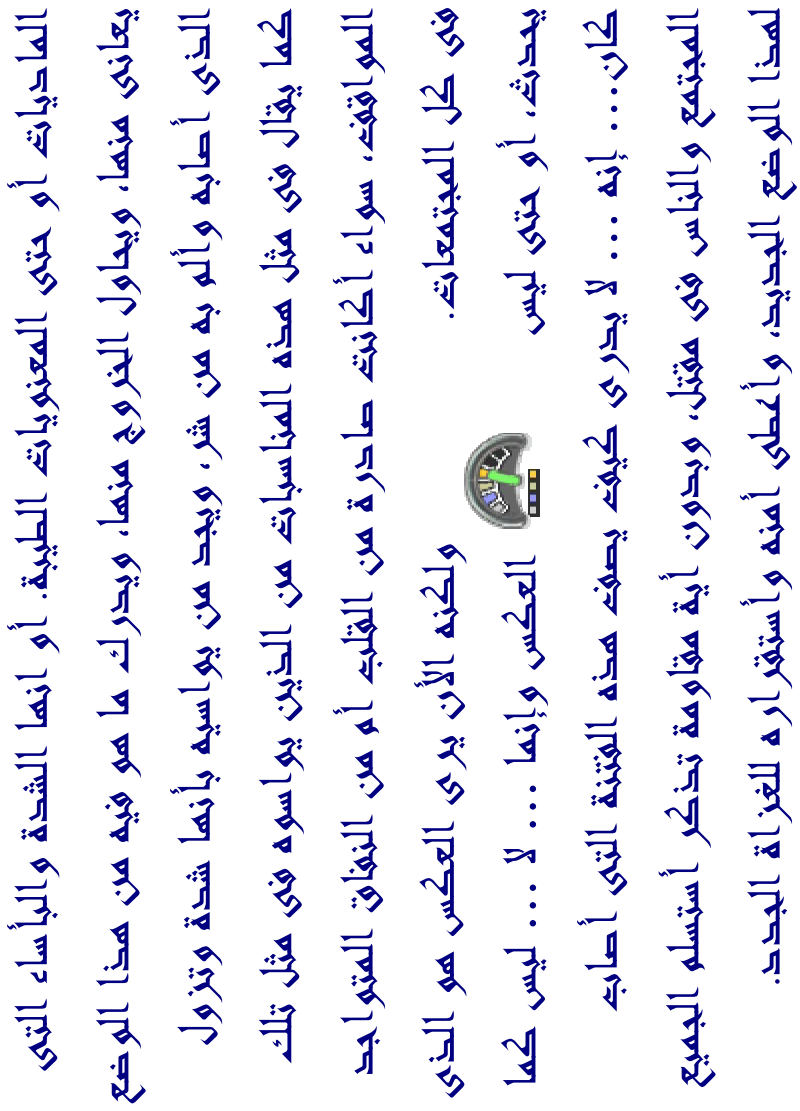 المادية أو حتى المعنوية الطيبة. أو إنها الشدة التي
تعاني منها، وتحاول الخروج منها، وتدرك ما هو فيه من هذا الموقف
الذي أصابه وألم به من شر، وتجد من تواسيه إنها شدة وتزول
كما قال في مثل هذه المناسبة من الذين تواسوه في مثل تلك
المواقف، سواء أكانت صادرة من القلب أو من النفاق المتواجد
في كل المجتمعات. وكأنه الأن يرى العكس هو الذي
تجده، أو حتى ليس العكس وإنما ... لا ... ليس كما
كان.... أنه ... لا تدري كيف تصف هذه الفترة التي أصابت
المجتمع والناس في مقتل، وبدون أية مقاومة تذكر استسلم الجميع
لهذا الموقف الجديد،